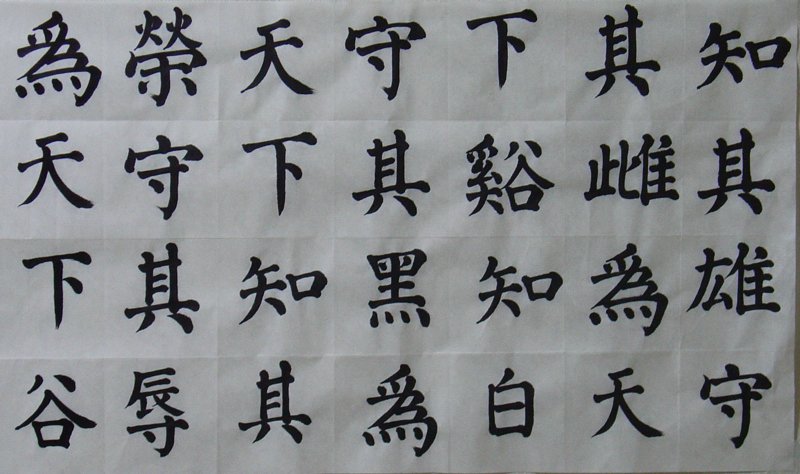 知其雄守
其雌爲天
下谿知白
守其黑爲
天下知其
榮守其辱
爲天下谷